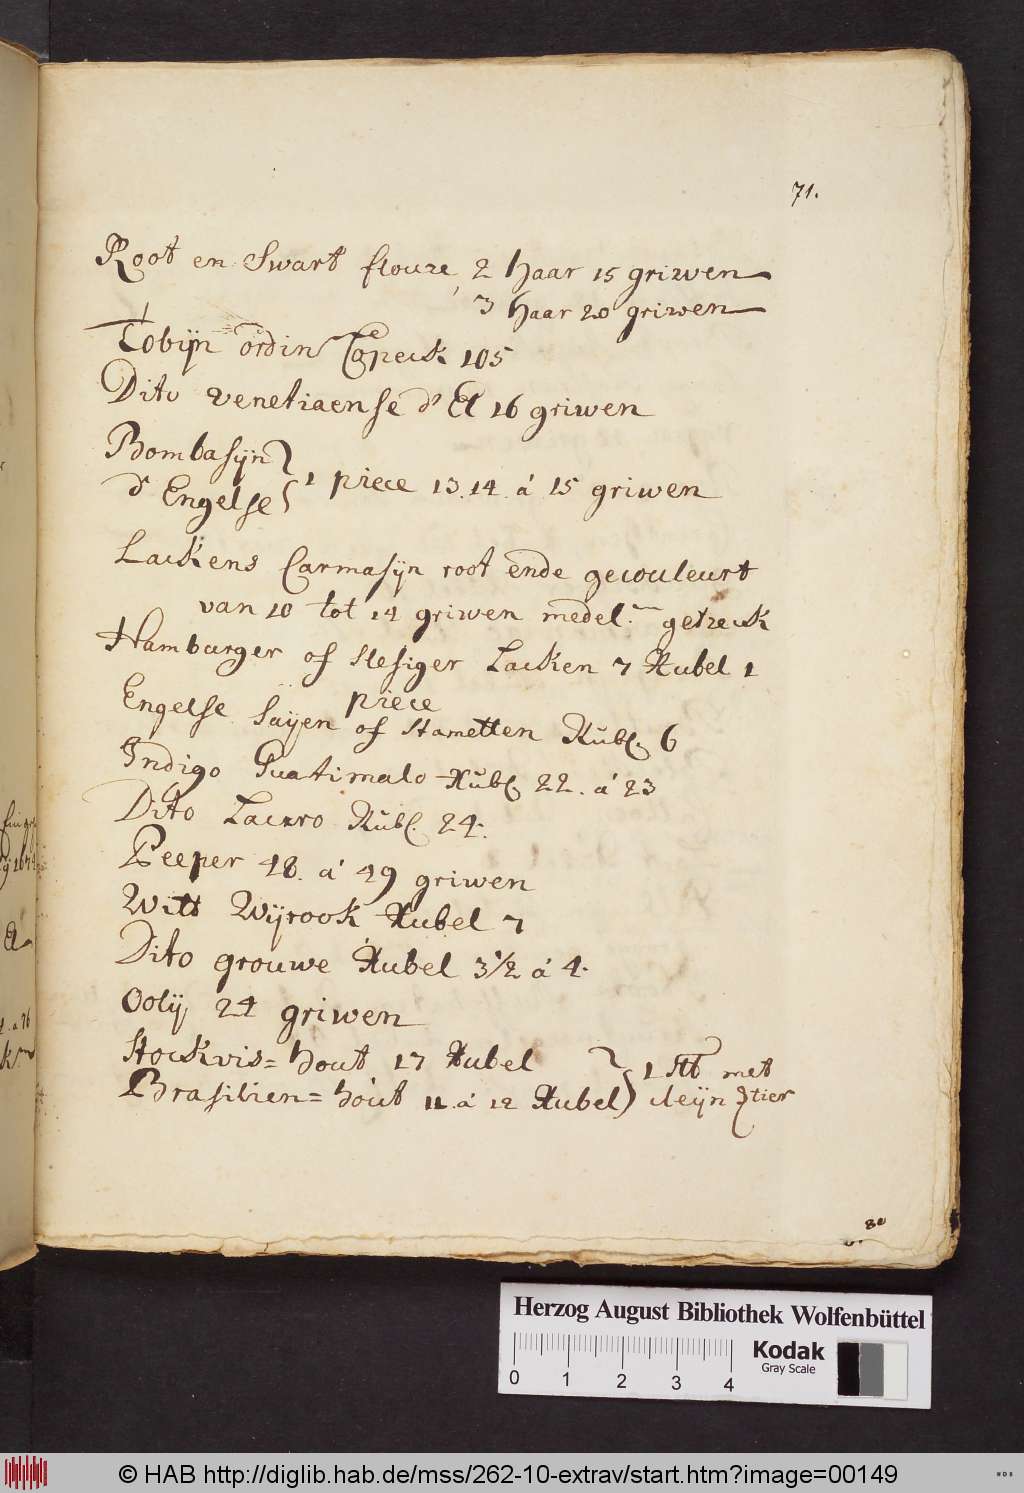 71.
Root en Swart floure, 2 haar 15 griwen
3 haar 20 griwen
Tobijn ordin Copeck 105
Dito venetiaense d' El 16 griwen
Bombasijn
d' Engelse } 1 piece 13. 14. á 15 griwen
Lackens Carmasijn root ende gecouleurt
van 10 tot 14 griwen medel. getreck
Hamburger of slesiger Lacken 7 Rubel 1
piece
Engelse Saijen of Stametten Rubl. 6
Indigo Guatimalo Rubl 22. á 23
Dito Lauro Rubl. 24.
Peeper 48. á 49 griwen
Witt Wijrook Rubel 7
Dito grouwe Rubel 3 1/2 á 4.
Oolij 24 griwen
Stockvis= hout 17 Rubel
Brasilien= hout 11. á 12 Rubel } 1 met
cleijn
80
Herzog August Bibliothek Wolfenbüttel
Kodak
Gray Scale
0 1 2 3 4
© HAB http://diglib.hab.de/mss/262-10-extrav/start.htm?image=00149